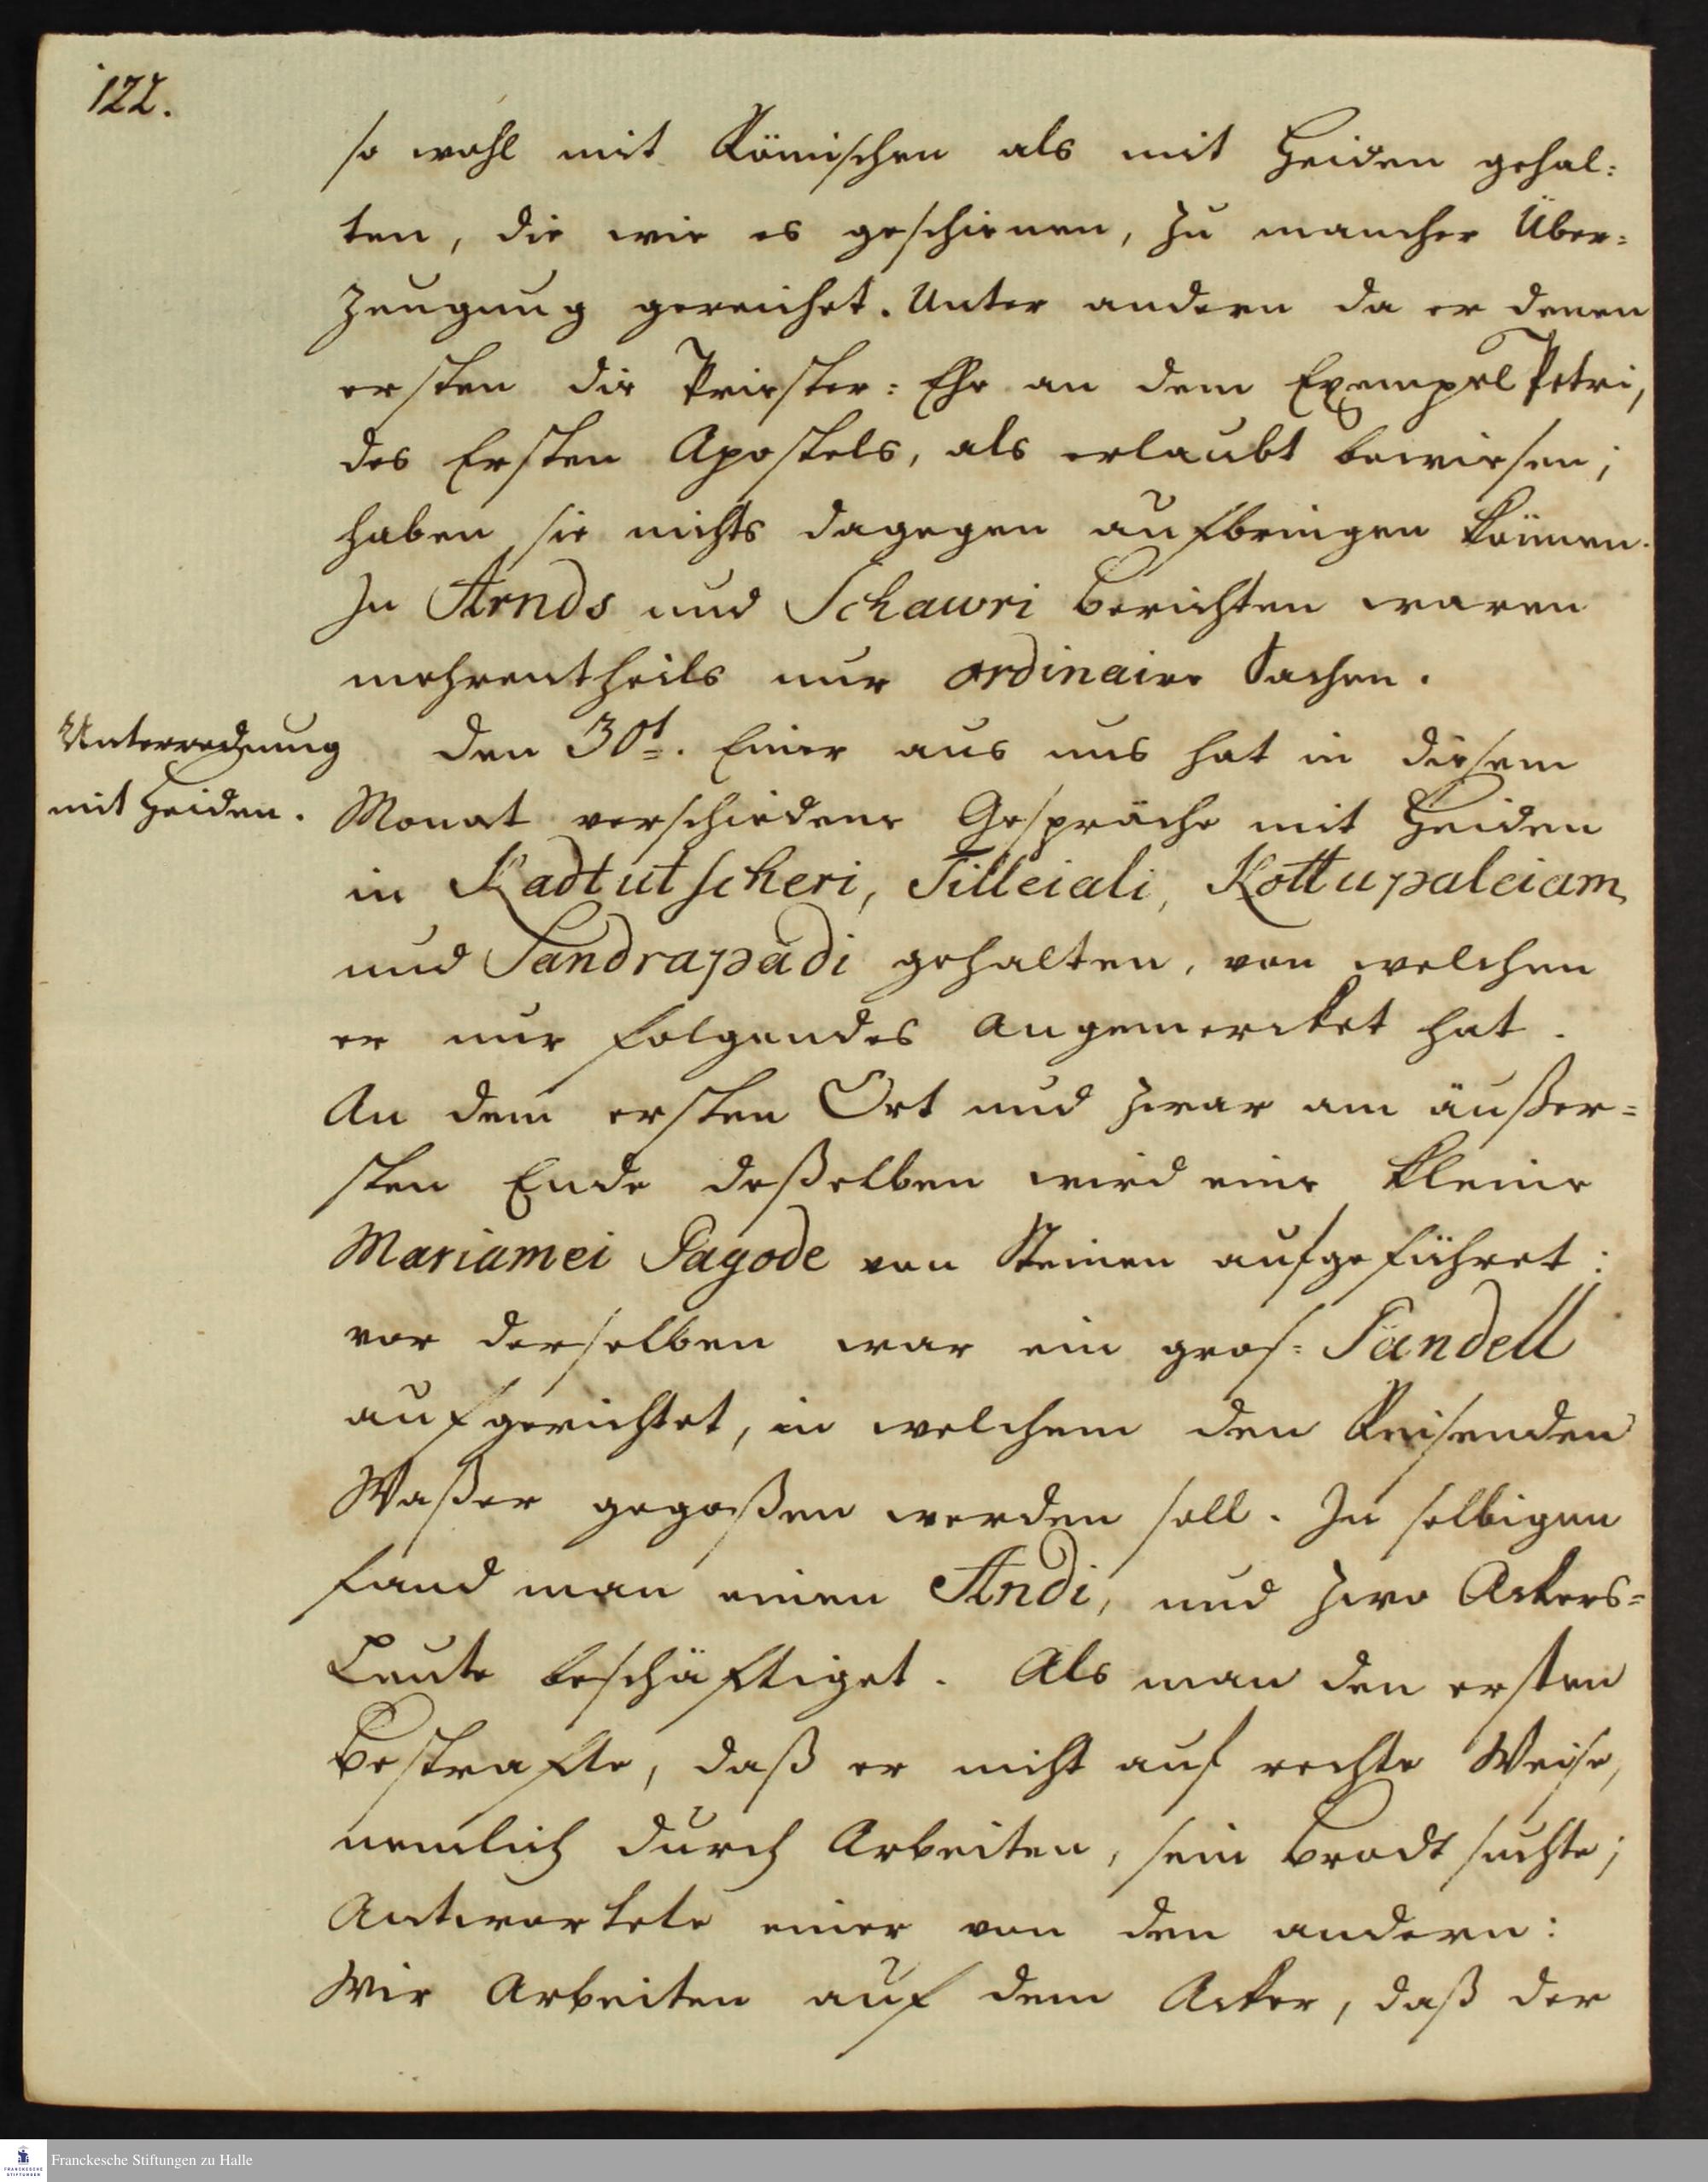 122.
so wohl mit Römischen als mit Heiden gehal=
ten, die wie es geschienen, zu mancher Über=
zeugung gereichet. Unter andern da er denen
ersten die Priester=Ehe an dem Exempel Petri,
des Ersten Apostels, als erlaubt bewiesen;
haben sie nichts dagegen aufbringen können.
In Arnds und Schawri Berichten waren
mehrentheils nur ordinaire Sachen.
Unterredung
mit Heiden.
den 30t. Einer aus uns hat in diesem
Monat verschiedene Gespräche mit Heiden
in Kadtutscheri, Tilleiali, Kottupaleiam,
und Sandrapadi gehalten, von welchen
er nur folgendes angemercket hat.
An dem ersten Ort und zwar am äußer=
sten Ende deßelben wird eine kleine
Mariamei Pagode von Steinen aufgeführet:
vor derselben war ein gros= Pandell
aufgerichtet, in welchem den Reisenden
Waßer gegoßen werden soll. In selbigen
fand man einen Andi, und zwo Ackers=
Leute beschäftiget. Als man den ersten
bestrafte, daß er nicht auf rechte Weise,
nemlich durch Arbeiten, sein Brodt suchte;
Antwortete einer von den andern:
Wir Arbeiten auf dem Acker, daß der
FRANCKESCHE
STIFTUNGEN
Franckesche Stiftungen zu Halle